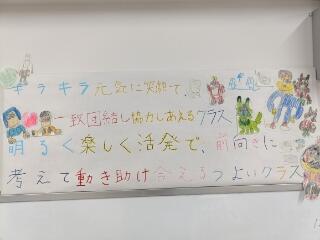 キラキラ元気に笑顔で、
一致団結し協力しあえるクラス
明るく楽しく活発で、前向きに
考えて動き助け合えるつよいクラス